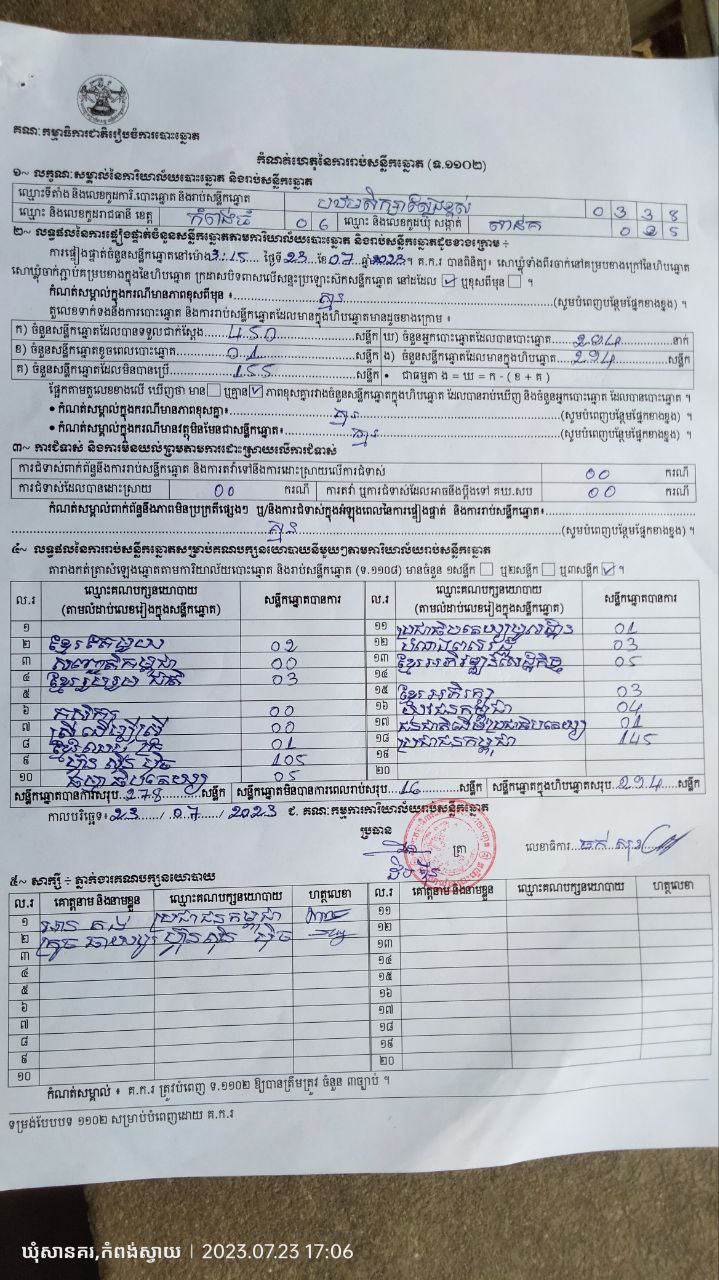 គណៈកម្មាធិការជាតិរៀបចំការបោះឆ្នោត
កំណត់ហេតុនៃការរាប់សន្លឹកឆ្នោត (ទ.១១០២)
១~ លក្ខណៈសម្គាល់នៃការិយាល័យបោះឆ្នោត និងរាប់សន្លឹកឆ្នោត
ឈ្មោះទីតាំង និងលេខកូដការិ.បោះឆ្នោត និងរាប់សន្លឹកឆ្នោត 0 3 3 8
ឈ្មោះ និងលេខកូដរាជធានី ខេត្ត កំពង់ធំ 0 6 ឈ្មោះ និងលេខកូដឃុំ សង្កាត់ សានគ 0 2 5
២~ លទ្ធផលនៃការផ្ទៀងផ្ទាត់ចំនួនសន្លឹកឆ្នោតតាមការិយាល័យបោះឆ្នោត និងរាប់សន្លឹកឆ្នោតដូចខាងក្រោម ÷
ការផ្ទៀងផ្ទាត់ចំនួនសន្លឹកឆ្នោតនៅម៉ោង 3:15 ថ្ងៃទី 23 ខែ 07 ឆ្នាំ 2023។ គ.ក.រ បានពិនិត្យ៖ សោឃ្លុំទាំងពីរចាក់នៅគម្របខាងក្រៅនៃហិបឆ្នោត
សោឃ្លុំចាក់ភ្ជាប់គម្របខាងក្នុងនៃហិបឆ្នោត ក្រដាសបិទពាសលើសន្ទះប្រឡោះស៊កសន្លឹកឆ្នោត នៅដដែល ☑ ឬខុសពីមុន ☐ ។
កំណត់សម្គាល់ក្នុងករណីមានភាពខុសពីមុន ៖ គ្មាន (សូមបំពេញបន្ថែមផ្នែកខាងខ្នង) ។
តួលេខទាក់ទងនឹងការបោះឆ្នោត និងការរាប់សន្លឹកឆ្នោតដែលមានក្នុងហិបឆ្នោតមានដូចខាងក្រោម ៖
ក) ចំនួនសន្លឹកឆ្នោតដែលបានទទួលជាក់ស្តែង 450 សន្លឹក ឃ) ចំនួនអ្នកបោះឆ្នោតដែលបានបោះឆ្នោត 294 នាក់
ខ) ចំនួនសន្លឹកឆ្នោតខូចពេលបោះឆ្នោត 01 សន្លឹក ង) ចំនួនសន្លឹកឆ្នោតដែលមានក្នុងហិបឆ្នោត 294 សន្លឹក
គ) ចំនួនសន្លឹកឆ្នោតដែលមិនបានប្រើ 155 សន្លឹក • ជាធម្មតា ង = ឃ = ក - ( ខ + គ )
ផ្អែកតាមតួលេខខាងលើ ឃើញថា មាន ☐ ឬគ្មាន ☑ ភាពខុសគ្នារវាងចំនួនសន្លឹកឆ្នោតក្នុងហិបឆ្នោត ដែលបានរាប់ឃើញ និងចំនួនអ្នកបោះឆ្នោត ដែលបានបោះឆ្នោត ។
• កំណត់សម្គាល់ក្នុងករណីមានភាពខុសគ្នា៖ គ្មាន (សូមបំពេញបន្ថែមផ្នែកខាងខ្នង) ។
• កំណត់សម្គាល់ក្នុងករណីមានវត្ថុមិនមែនជាសន្លឹកឆ្នោត៖ គ្មាន (សូមបំពេញបន្ថែមផ្នែកខាងខ្នង) ។
៣~ ការជំទាស់ និងការមិនយល់ព្រមតាមការដោះស្រាយលើការជំទាស់
ការជំទាស់ពាក់ព័ន្ធនឹងការរាប់សន្លឹកឆ្នោត និងការតវ៉ាទៅនឹងការដោះស្រាយលើការជំទាស់ 00 ករណី
ការជំទាស់ដែលបានដោះស្រាយ 00 ករណី ការតវ៉ា ឬការជំទាស់ដែលអាចនឹងប្តឹងទៅ គឃ.សប 00 ករណី
កំណត់សម្គាល់ពាក់ព័ន្ធនឹងភាពមិនប្រក្រតីផ្សេងៗ ឬ/និងការជំទាស់ក្នុងអំឡុងពេលនៃការផ្ទៀងផ្ទាត់ និងការរាប់សន្លឹកឆ្នោត៖
គ្មាន (សូមបំពេញបន្ថែមផ្នែកខាងខ្នង) ។
៤~ លទ្ធផលនៃការរាប់សន្លឹកឆ្នោតសម្រាប់គណបក្សនយោបាយនីមួយៗតាមការិយាល័យរាប់សន្លឹកឆ្នោត
តារាងកត់ត្រាសំឡេងឆ្នោតតាមការិយាល័យបោះឆ្នោត និងរាប់សន្លឹកឆ្នោត (ទ.១១០៨) មានចំនួន ១សន្លឹក ☐ ឬ២សន្លឹក ☐ ឬ៣សន្លឹក ☑ ។
ល.រ ឈ្មោះគណបក្សនយោបាយ (តាមលំដាប់លេខរៀងក្នុងសន្លឹកឆ្នោត) សន្លឹកឆ្នោតបានការ ល.រ ឈ្មោះគណបក្សនយោបាយ (តាមលំដាប់លេខរៀងក្នុងសន្លឹកឆ្នោត) សន្លឹកឆ្នោតបានការ
១ ១១ 01
២ 02 ១២ 03
៣ សញ្ជាតិកម្ពុជា 00 ១៣ ខ្មែរអភិវឌ្ឍន៍សេដ្ឋកិច្ច 05
៤ ខ្មែររួបរួមជាតិ 03 ១៤
៥ ១៥ ខ្មែរអភិរក្ស 03
៦ កសិករ 00 ១៦ យុវជនកម្ពុជា 04
៧ ស្រីដើម្បីស្រី 00 ១៧ ជនជាតិដើមប្រជាធិបតេយ្យ 01
៨ 01 ១៨ ប្រជាជនកម្ពុជា 145
៩ ហ៊្វុនស៊ិនប៉ិច 105 ១៩
១០ 05 ២០
សន្លឹកឆ្នោតបានការសរុប 278 សន្លឹក សន្លឹកឆ្នោតមិនបានការពេលរាប់សរុប 16 សន្លឹក សន្លឹកឆ្នោតក្នុងហិបឆ្នោតសរុប 294 សន្លឹក
កាលបរិច្ឆេទ៖ 23 / 07 / 2023 ជ. គណៈកម្មការការិយាល័យរាប់សន្លឹកឆ្នោត
ប្រធាន
ត្រា លេខាធិការ
៥~ សាក្សី ÷ ភ្នាក់ងារគណបក្សនយោបាយ
ល.រ គោត្តនាម និងនាមខ្លួន ឈ្មោះគណបក្សនយោបាយ ហត្ថលេខា ល.រ គោត្តនាម និងនាមខ្លួន ឈ្មោះគណបក្សនយោបាយ ហត្ថលេខា
១ ប្រជាជនកម្ពុជា ១១
២ ហ៊្វុនស៊ិនប៉ិច ១២
៣ ១៣
៤ ១៤
៥ ១៥
៦ ១៦
៧ ១៧
៨ ១៨
៩ ១៩
១០ ២០
កំណត់សម្គាល់ ៖ គ.ក.រ ត្រូវបំពេញ ទ.១១០២ ឱ្យបានត្រឹមត្រូវ ចំនួន ៣ច្បាប់ ។
ទម្រង់បែបបទ ១១០២ សម្រាប់បំពេញដោយ គ.ក.រ
ឃុំសានគរ,កំពង់ស្វាយ | 2023.07.23 17:06